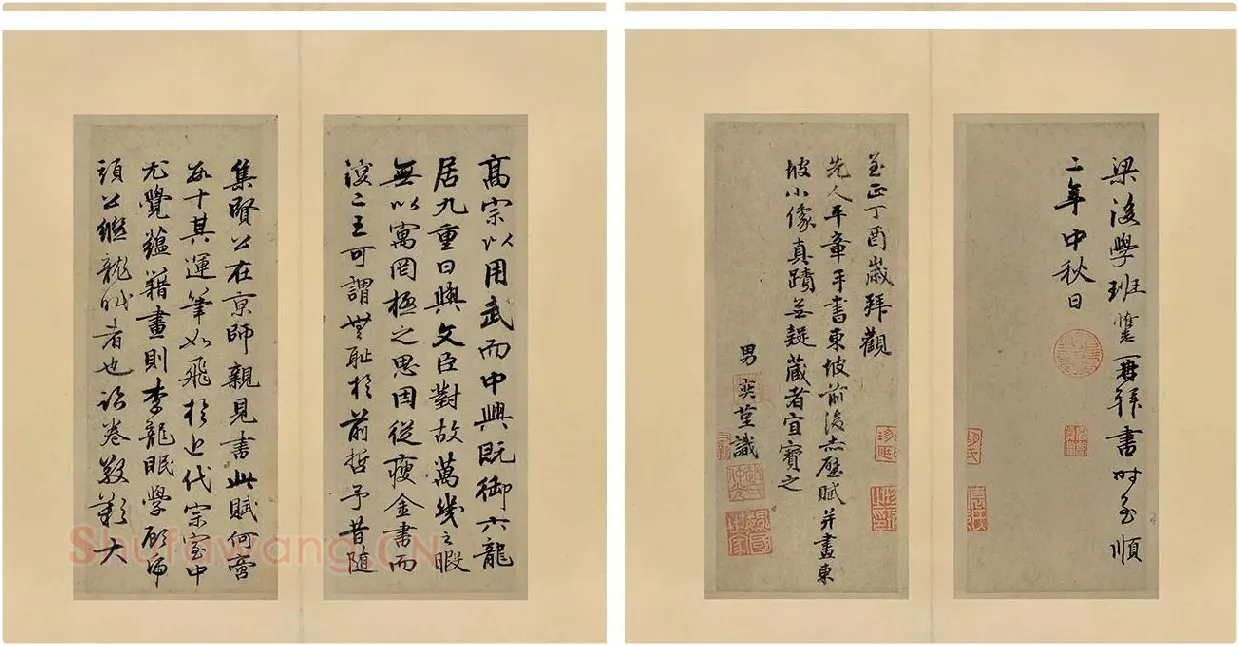 高宗以用武而中興既御六龍
居九重日與文臣對故萬幾之暇
無以寓罔極之思因從瘦金書而
淩二王可謂無恥於前哲予昔隨
集賢公在京師親見書此賦何啻
數十其運筆如飛於近代宗室中
尤覺蘊籍畫則李龍眠學顧虎
頭公繼龍眠者也詒卷敬歎大
梁後學班惟志再拜書時至順
二年中秋日
至正丁酉歲拜觀
先人平章手書東坡前後赤壁賦并畫東
坡小像真蹟無疑藏者宜寶之
男奕菫識
Shufawang.CN